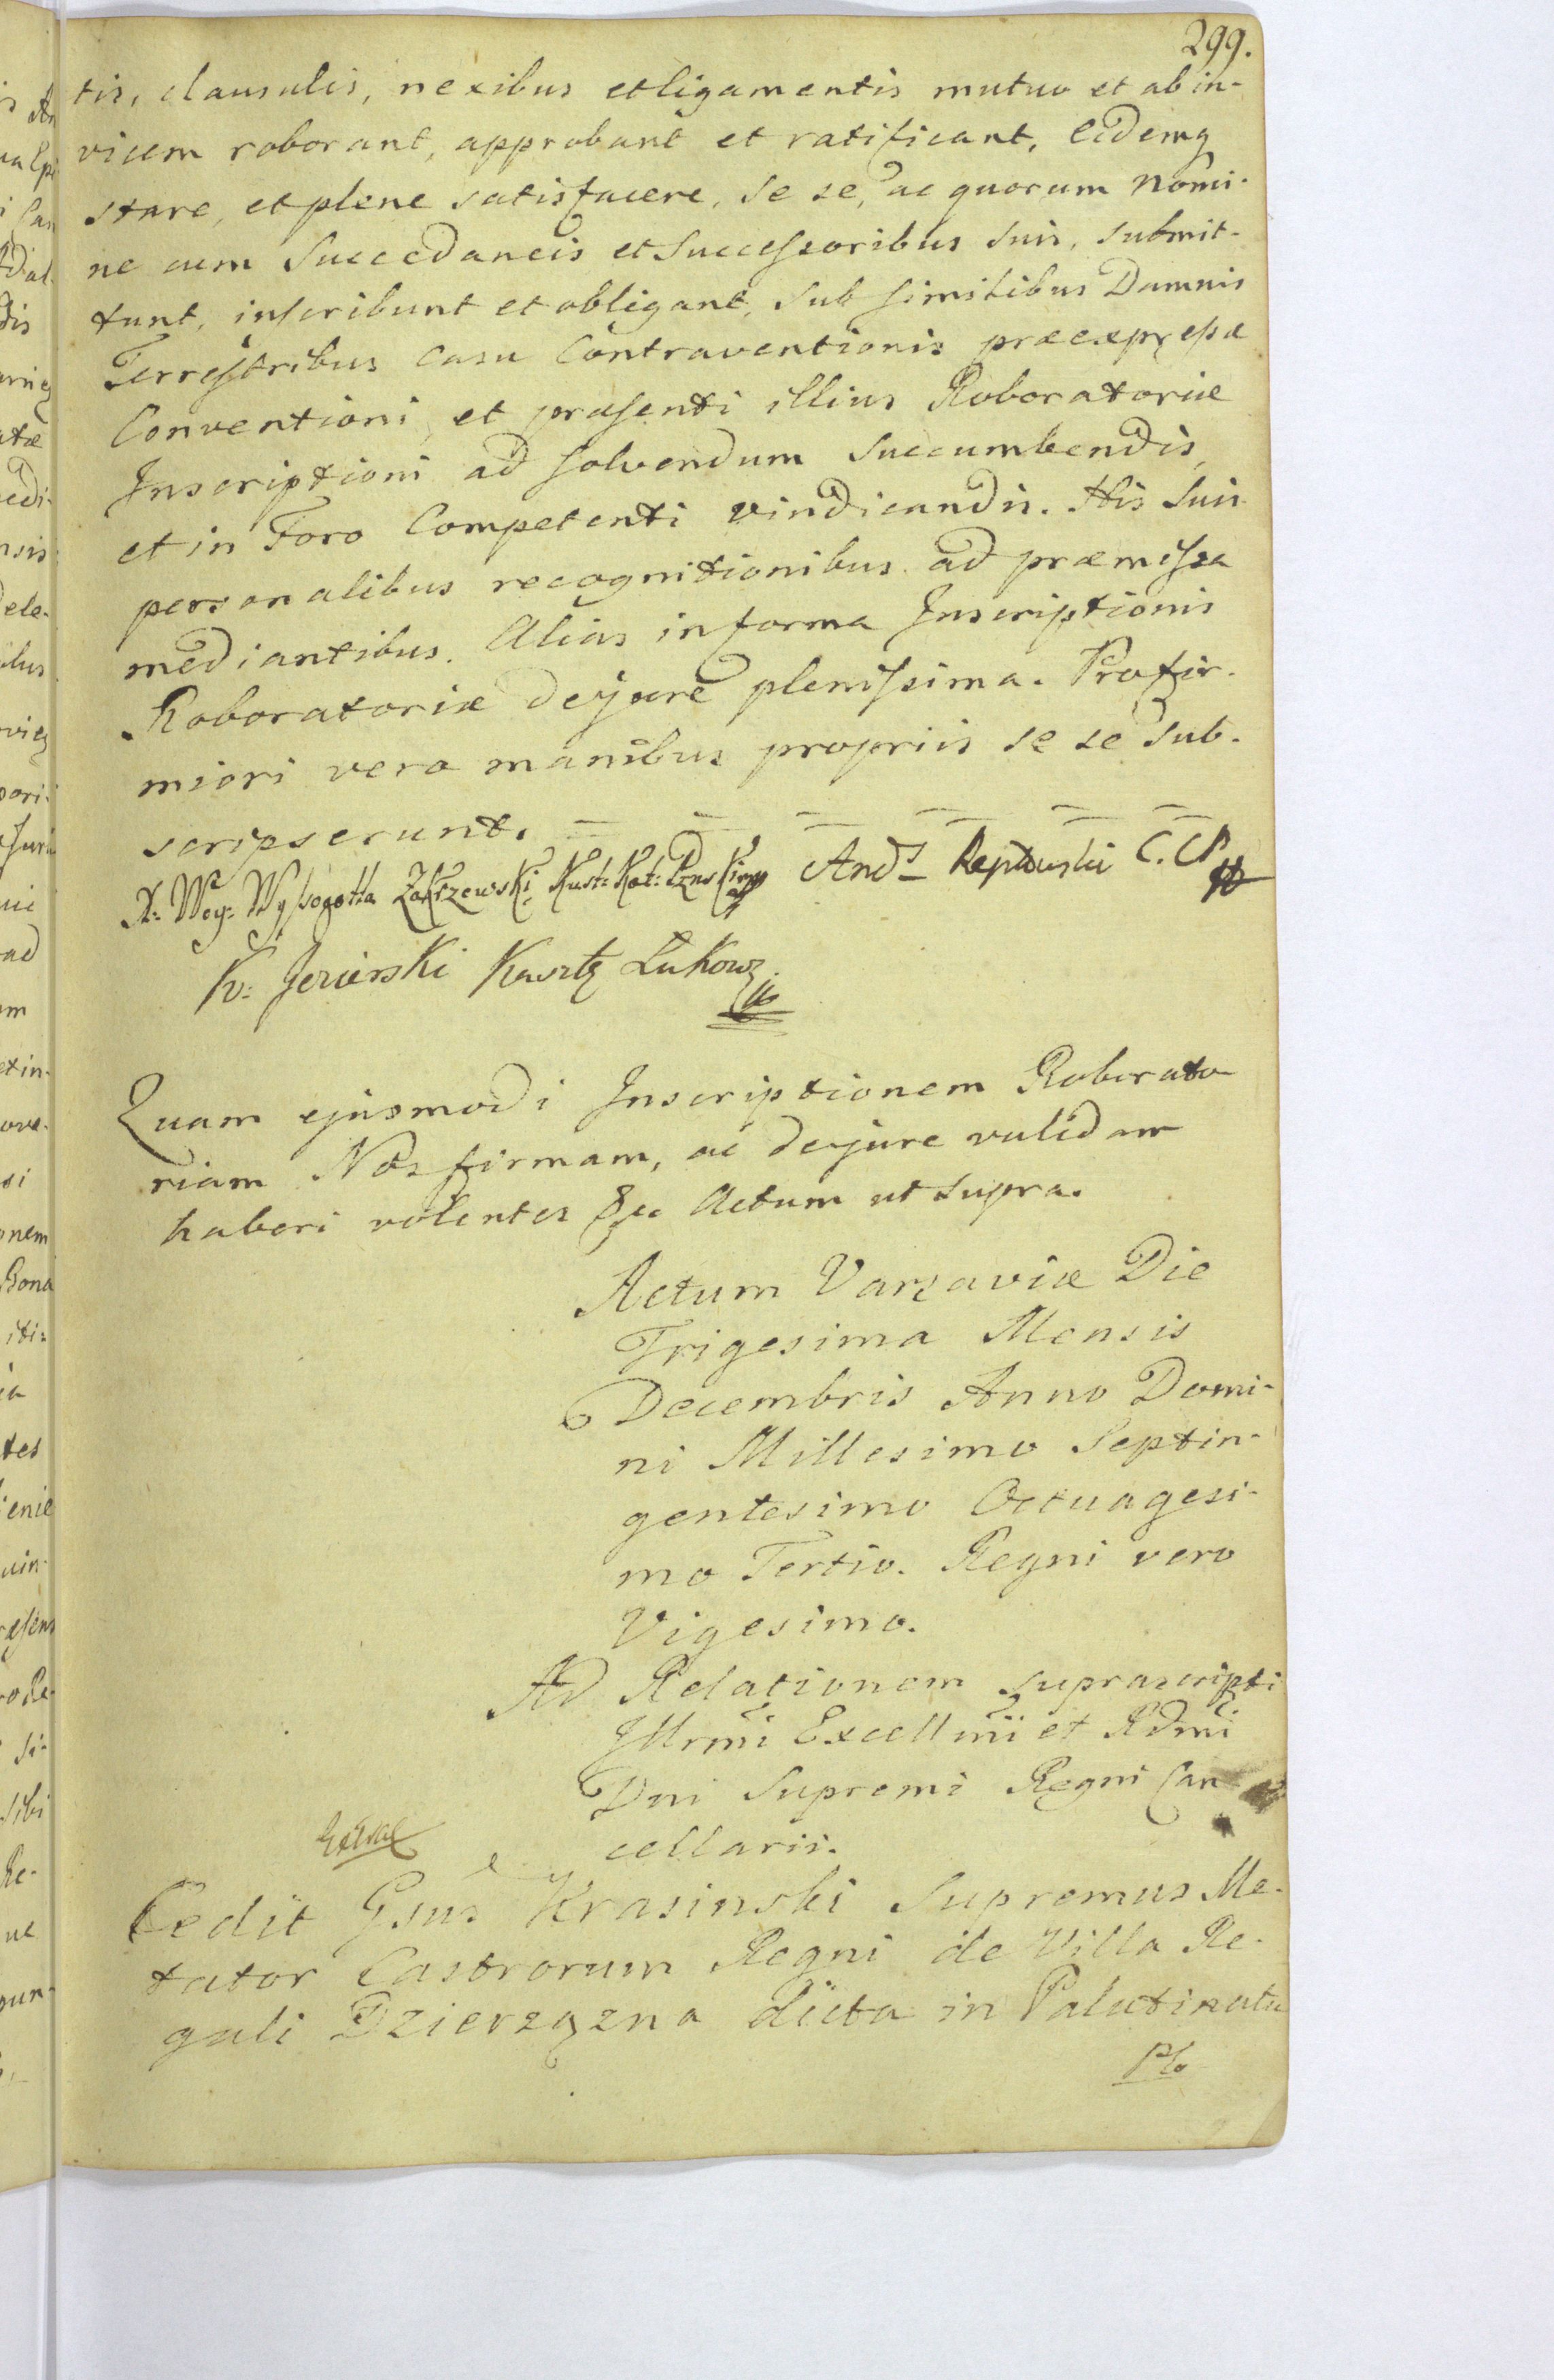 299.
tis, clausulis, nexibus et ligamentis mutuo et ab in-
vicem roborant, approbant et ratificant, Eidemq
stare, et plene satisfacere, se se, ac quorum Nomi-
ne cum Succedaneis et Successoribus suis, submit-
tunt, inscribunt et obligant, sub similibus Damnis
Terrestribus casu Contraventionis præexpressæ
Conventioni, et præsenti illius Roboratoriæ
Inscriptioni ad solvendum succumbendis,
et in Foro Competenti vindicandis. His suis
personalibus recognitionibus ad præmissa
mediantibus. Alias in forma Inscriptionis
Roboratoriæ de jure plenissima. Pro fir-
miori vero manibus propriis se se sub-
scripserunt.
X: Woy: Wyssogotta Zakrzewski Kust: Kat: And: Reptowski C. C. P.
K: Jezierski Kasztz Łukowz.
Quam ejusmodi Inscriptionem Roborato
riam Nos firmam, ac de jure validam
haberi volentes &c Actum ut supra.
Actum Varsaviæ Die
Trigesima Mensis
Decembris Anno Domi-
ni Millesimo Septin-
gentesimo Octuagesi-
mo Tertio. Regni vero
Vigesimo.
Ad Relationem suprascripti
Illrmi Excellmi et Rdmi
Dni Supremi Regni Can
cellarii.
Cedit Gsus Krasinski Supremus Me-
tator Castrorum Regni de Villa Re-
gali Dzierzązna dicta in Palatinatu